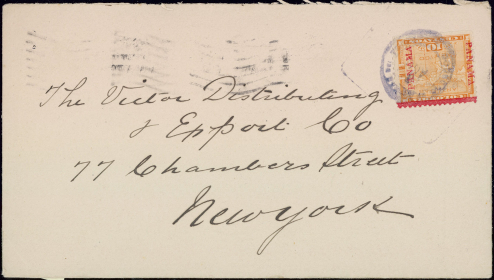 The Victor Distributing
& Export Co
77 Chambers Street
New York
PANAMA
PANAMA
10